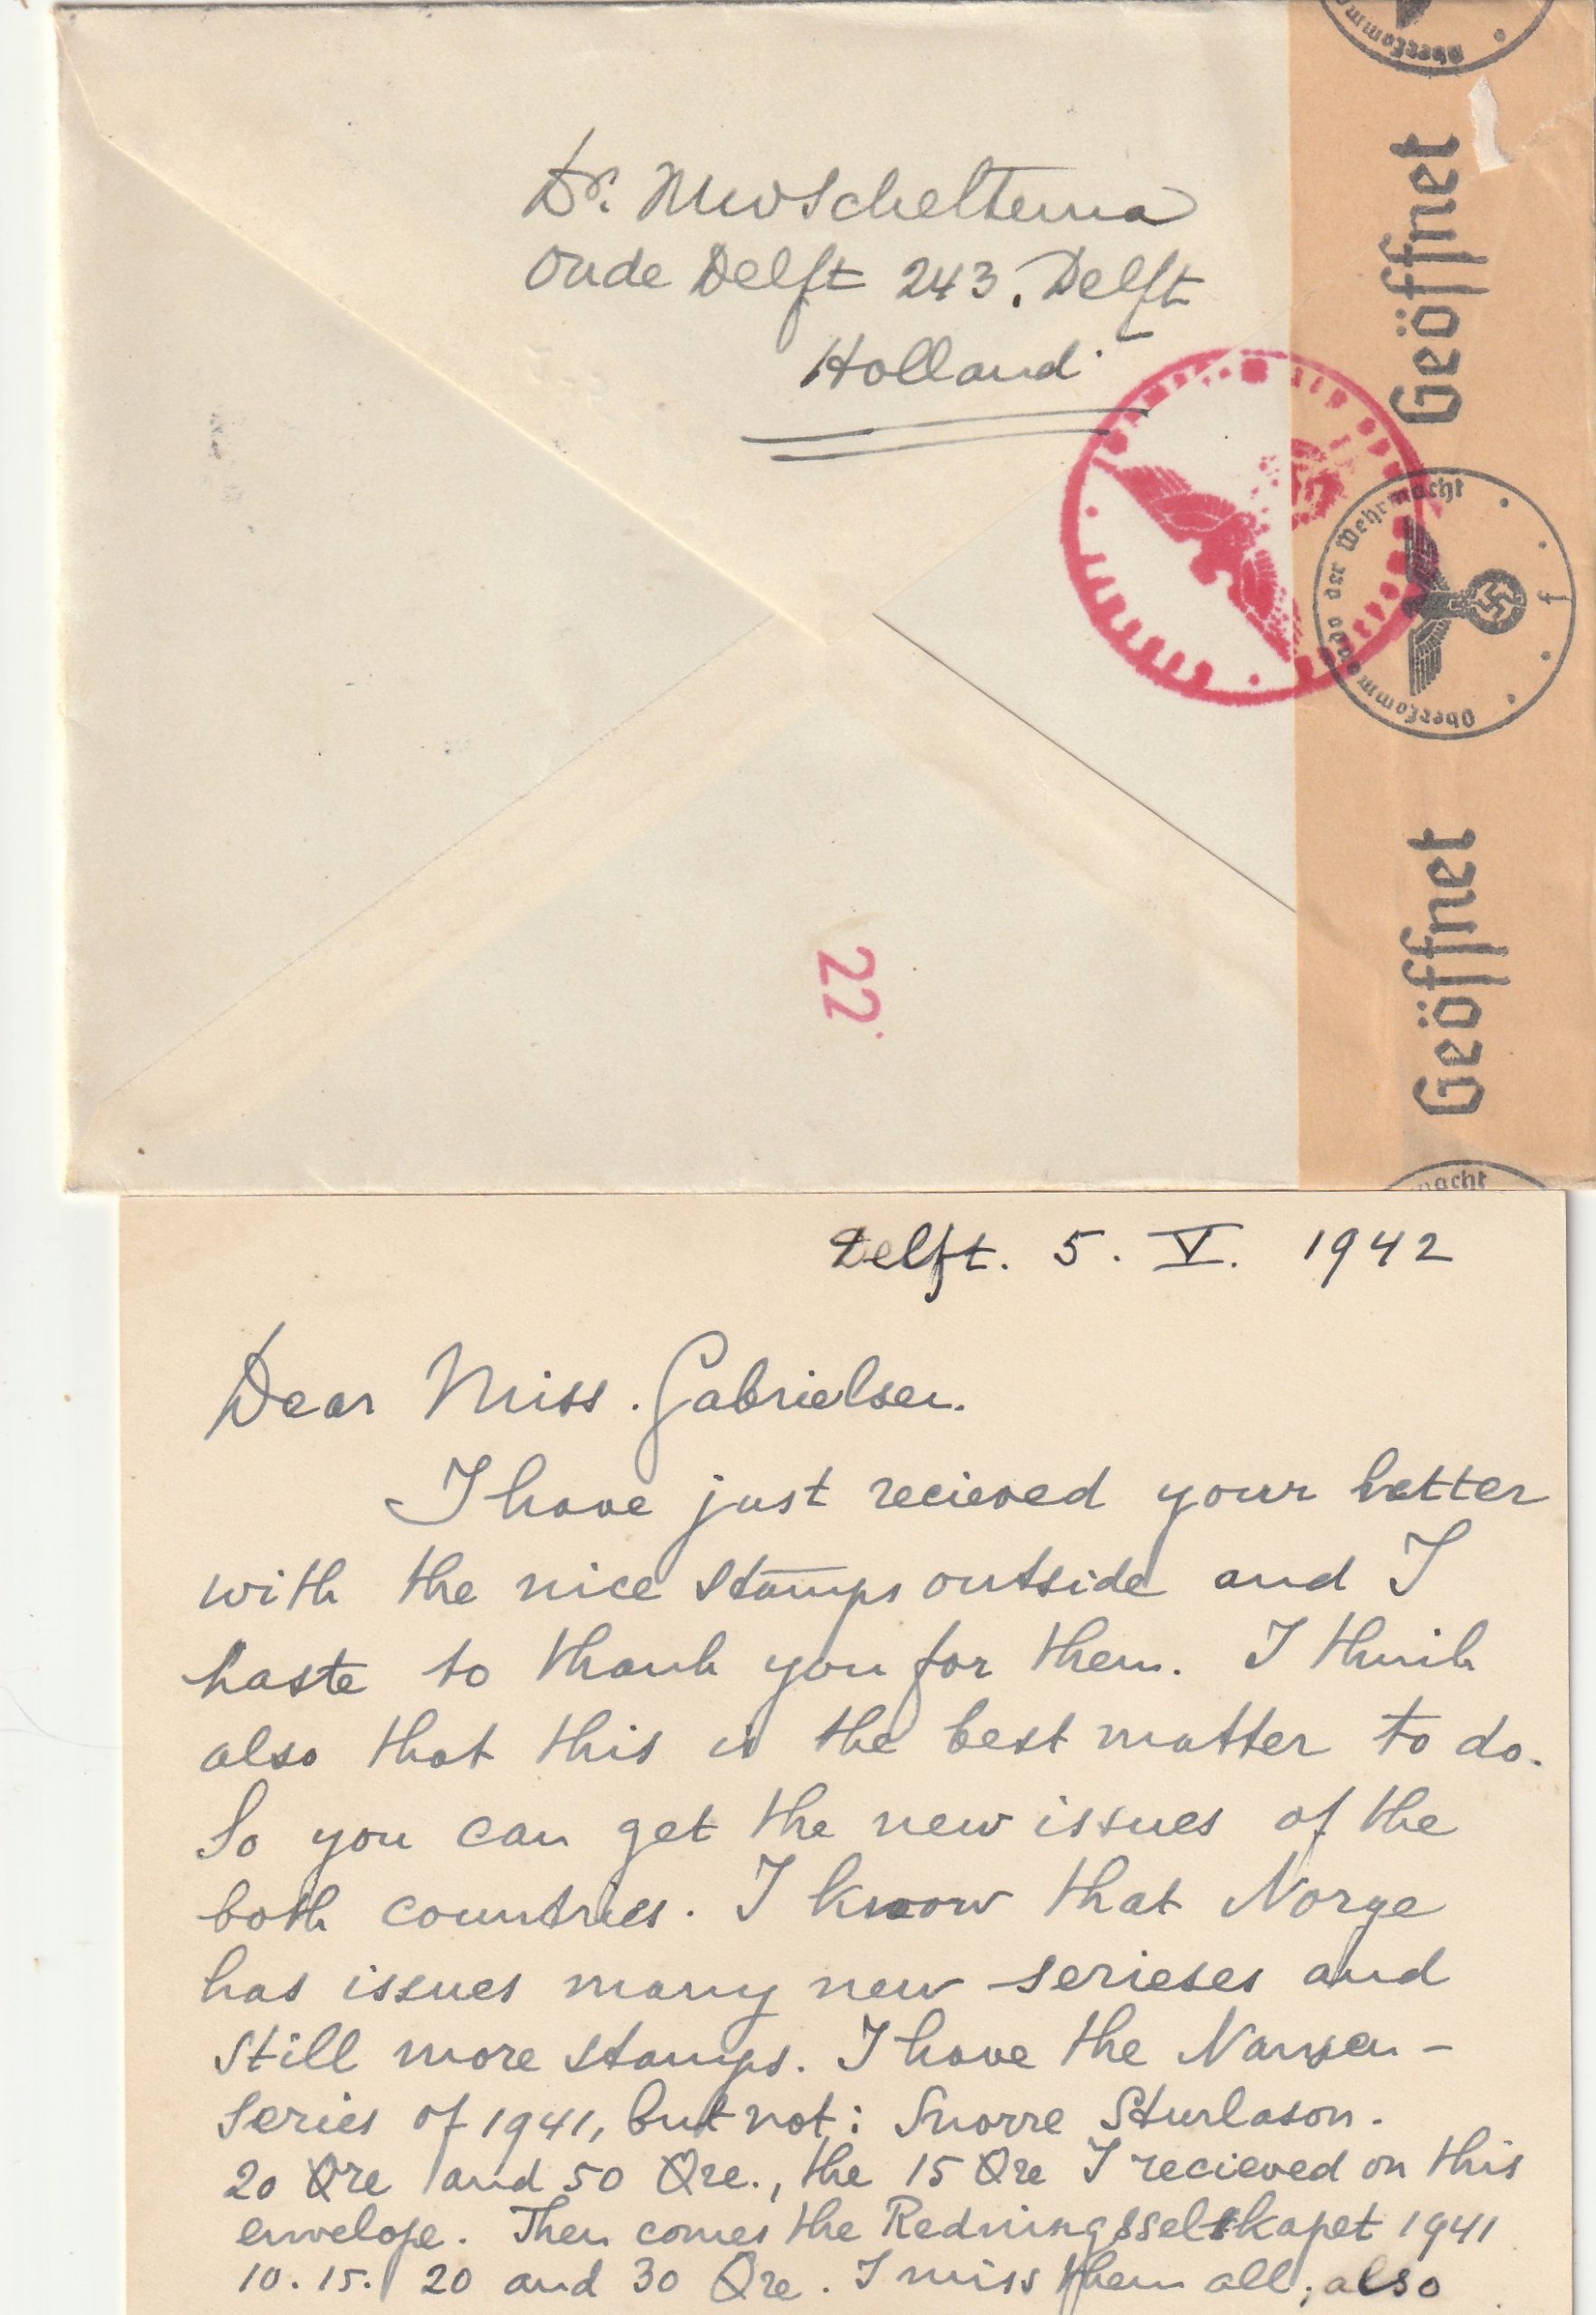 Dr. MwScheltema
Oude Delft 243. Delft
Holland
Geöffnet
Oberkommando der Wehrmacht
f
Geöffnet
22
Delft. 5. V. 1942
Dear Miss. Gabrielsen.
I have just recieved your letter
with the nice stamps outside and I
haste to thank you for them. I think
also that this is the best matter to do.
So you can get the new issues of the
both countries. I know that Norge
has issues many new serieses and
still more stamps. I have the Nansen-
series of 1941, but not: Snorre Sturlason.
20 Øre and 50 Øre., the 15 Øre I recieved on this
envelope. Then comes the Redningsselskapet 1941
10. 15. 20 and 30 Øre. I miss them all, also